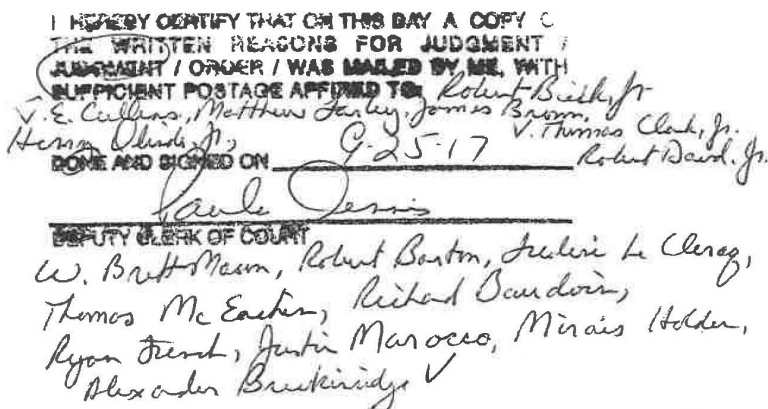 I HEREBY CERTIFY THAT ON THIS DAY A COPY O
THE WRITTEN REASONS FOR JUDGMENT /
JUDGMENT / ORDER / WAS MAILED BY ME, WITH
SUFFICIENT POSTAGE AFFIXED TO: Robert Bieck, Jr
V.E. Cullens, Matthew Farley, James Brown,
V. Thomas Clark, Jr.
Henry Olinde, Jr,
DONE AND SIGNED ON 9-25-17 Robert David, Jr.
DEPUTY CLERK OF COURT
W. Brett Mason, Robert Barton, Le Clercq,
Thomas McEachin, Richard Baudouin,
Ryan French, Justin Marocco, Holder,
Alexander Breckinridge ✓